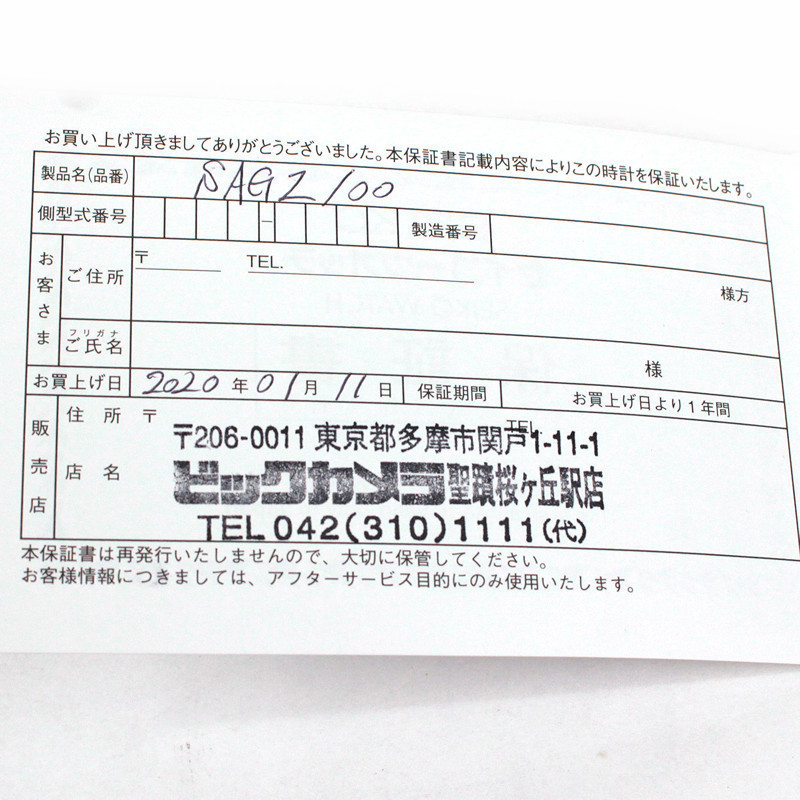 お買い上げ頂きましてありがとうございました。本保証書記載内容によりこの時計を保証いたします。
製品名(品番) SAGZ100
側型式番号 － 製造番号
お客さま
ご住所 〒 TEL. 様方
フリガナ
ご氏名 様
お買上げ日 2020年01月11日 保証期間 お買上げ日より1年間
販売店
住所 〒 TEL
〒206-0011 東京都多摩市関戸1-11-1
店名 ビックカメラ聖蹟桜ヶ丘駅店
TEL 042(310)1111(代)
本保証書は再発行いたしませんので、大切に保管してください。
お客様情報につきましては、アフターサービス目的にのみ使用いたします。